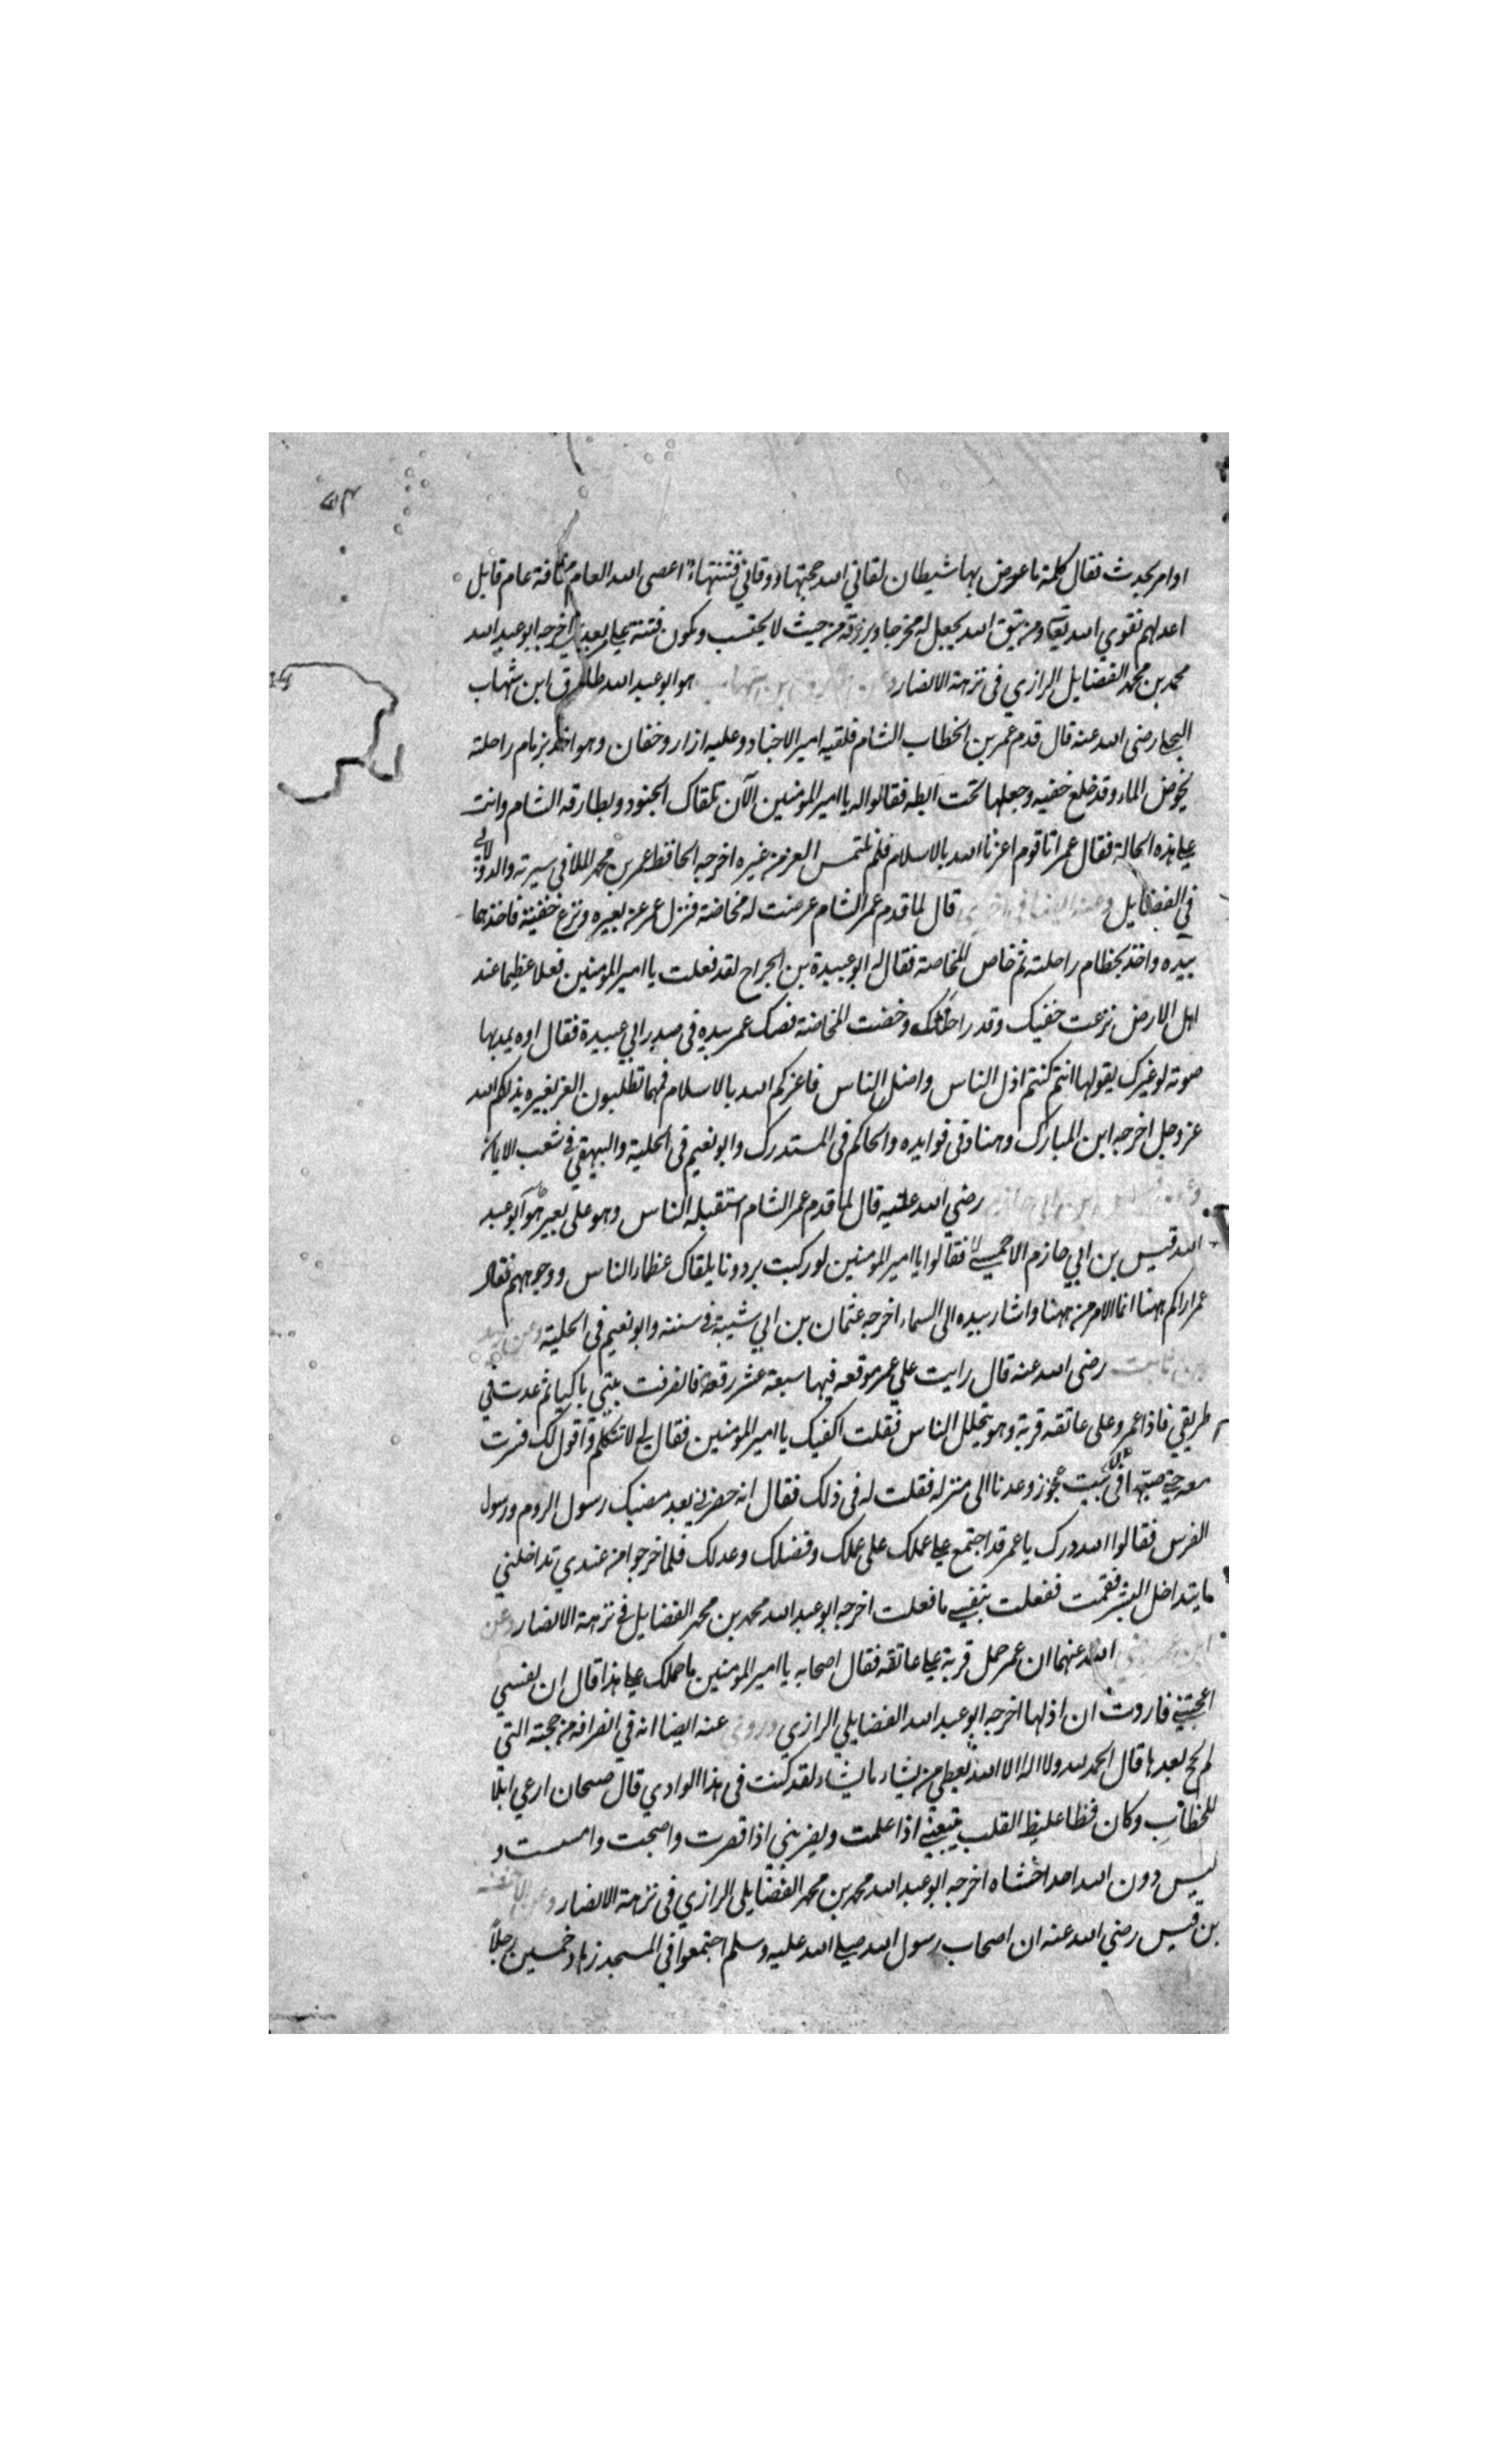 اوامر بحدث فقال كلمة ما عوض بها شيطان لقاني الله حجتها ووقاني فتنتها اعصى الله العام مخافة عام قابل
اعد لهم تقوي الله تعالى ومن يتق الله يجعل له مخرجا ويرزقه من حيث لا يحتسب وتكون فتنة على بعدي اخرجه ابو عبد الله
محمد بن محمد الفضايل الرازي في نزهة الابصار وعن طارق بن شهاب هو ابو عبد الله طارق ابن شهاب
البجلي رضى الله عنه قال قدم عمر بن الخطاب الشام فلقيه امير الاجناد وعليه ازار وخفان وهو اخذ بزمام راحلته
يخوض الماء وقد خلع خفيه وجعلها تحت ابطه فقالوا له يا امير المؤمنين الآن تلقاك الجنود وبطارقه الشام وانت
على هذه الحالة فقال عمر انا قوم اعزنا الله بالاسلام فلم نلتمس العز من غيره اخرجه الحافظ عمر بن محمد الملا في سيرته والدولابي
في الفضايل وعنه ايضا قال لما قدم عمر الشام عرضت له مخاضة فنزل عمر عن بعيره ونزع خفيه فاخذهما
بيده واخذ بخطام راحلته ثم خاض المخاضة فقال له ابو عبيدة بن الجراح لقد فعلت يا امير المؤمنين فعلا عظيما عند
اهل الارض نزعت خفيك وقدت راحلتك وخضت المخاضة فصك عمر بيده في صدر ابي عبيدة فقال اوه يمد بها
صوته لو غيرك يقولها انتم كنتم اذل الناس واضل الناس فاعزكم الله بالاسلام فمهما تطلبون العز بغيره يذلكم الله
عز وجل اخرجه ابن المبارك وهناد في فوايده والحاكم في المستدرك وابو نعيم في الحلية والبيهقي في شعب الايمان
وعن قيس ابن ابي حازم رضي الله عنه قال لما قدم عمر الشام استقبله الناس وهو على بعير هو ابو عبد
الله قيس بن ابي حازم الاحمسي فقالوا يا امير المؤمنين لو ركبت برذونا يلقاك عظماء الناس ووجوههم فقال
عمر اراكم ههنا انما الامر من ههنا واشار بيده الى السماء اخرجه عثمان بن ابي شيبة في سننه وابو نعيم في الحلية وعن زيد
بن ثابت رضى الله عنه قال رايت علي عمر مرقعه فيها سبعة عشر رقعة فانصرفت بيتي باكيا ثم عدت في
طريقي فاذا عمر وعلى عاتقه قربة وهو يتخلل الناس فقلت اكفيك يا امير المؤمنين فقال لي لا تتكلم واقول لك فسرت
معه حتى صبها في بيت عجوز وعدنا الى منزله فقلت له في ذلك فقال انه حضرني بعد مضيك رسول الروم ورسول
الفرس فقالوا لله درك يا عمر قد اجتمع على عملك على علمك وفضلك وعدلك فلما خرجوا من عندي تداخلني
ما يتداخل البشر فقمت ففعلت بنفسي ما فعلت اخرجه ابو عبد الله محمد بن محمد الفضايل في نزهة الابصار وعن
ابن عمر رضي الله عنهما ان عمر حمل قربة على عاتقه فقال اصحابه يا امير المؤمنين ما حملك على هذا قال ان نفسي
اعجبتني فاردت ان اذلها اخرجه ابو عبد الله الفضايلي الرازي وروي عنه ايضا انه في انصرافه من حجته التي
لم يحج بعدها قال الحمد لله ولا اله الا الله يعطي من يشاء ما يشاء لقد كنت في هذا الوادي قال ضجنان ارعي ابلا
للخطاب وكان فظا غليظ القلب يتبعني اذا علمت ويضربني اذا قصرت واصبحت وامسيت و
ليس دون الله احد اخشاه اخرجه ابو عبد الله محمد بن محمد الفضايلي الرازي في نزهة الابصار وعن الاحنف
بن قيس رضي الله عنه ان اصحاب رسول الله صلى الله عليه وسلم اجتمعوا في المسجد زهاد خمسين رجلا